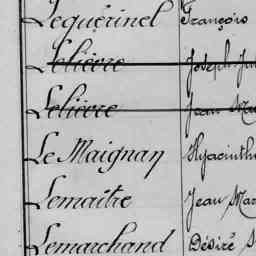 Lequérinel François
Lelièvre Joseph
Lelièvre Jean
Le Maignan Hyacinthe
Lemaître Jean Mar
Lemarchand Désiré